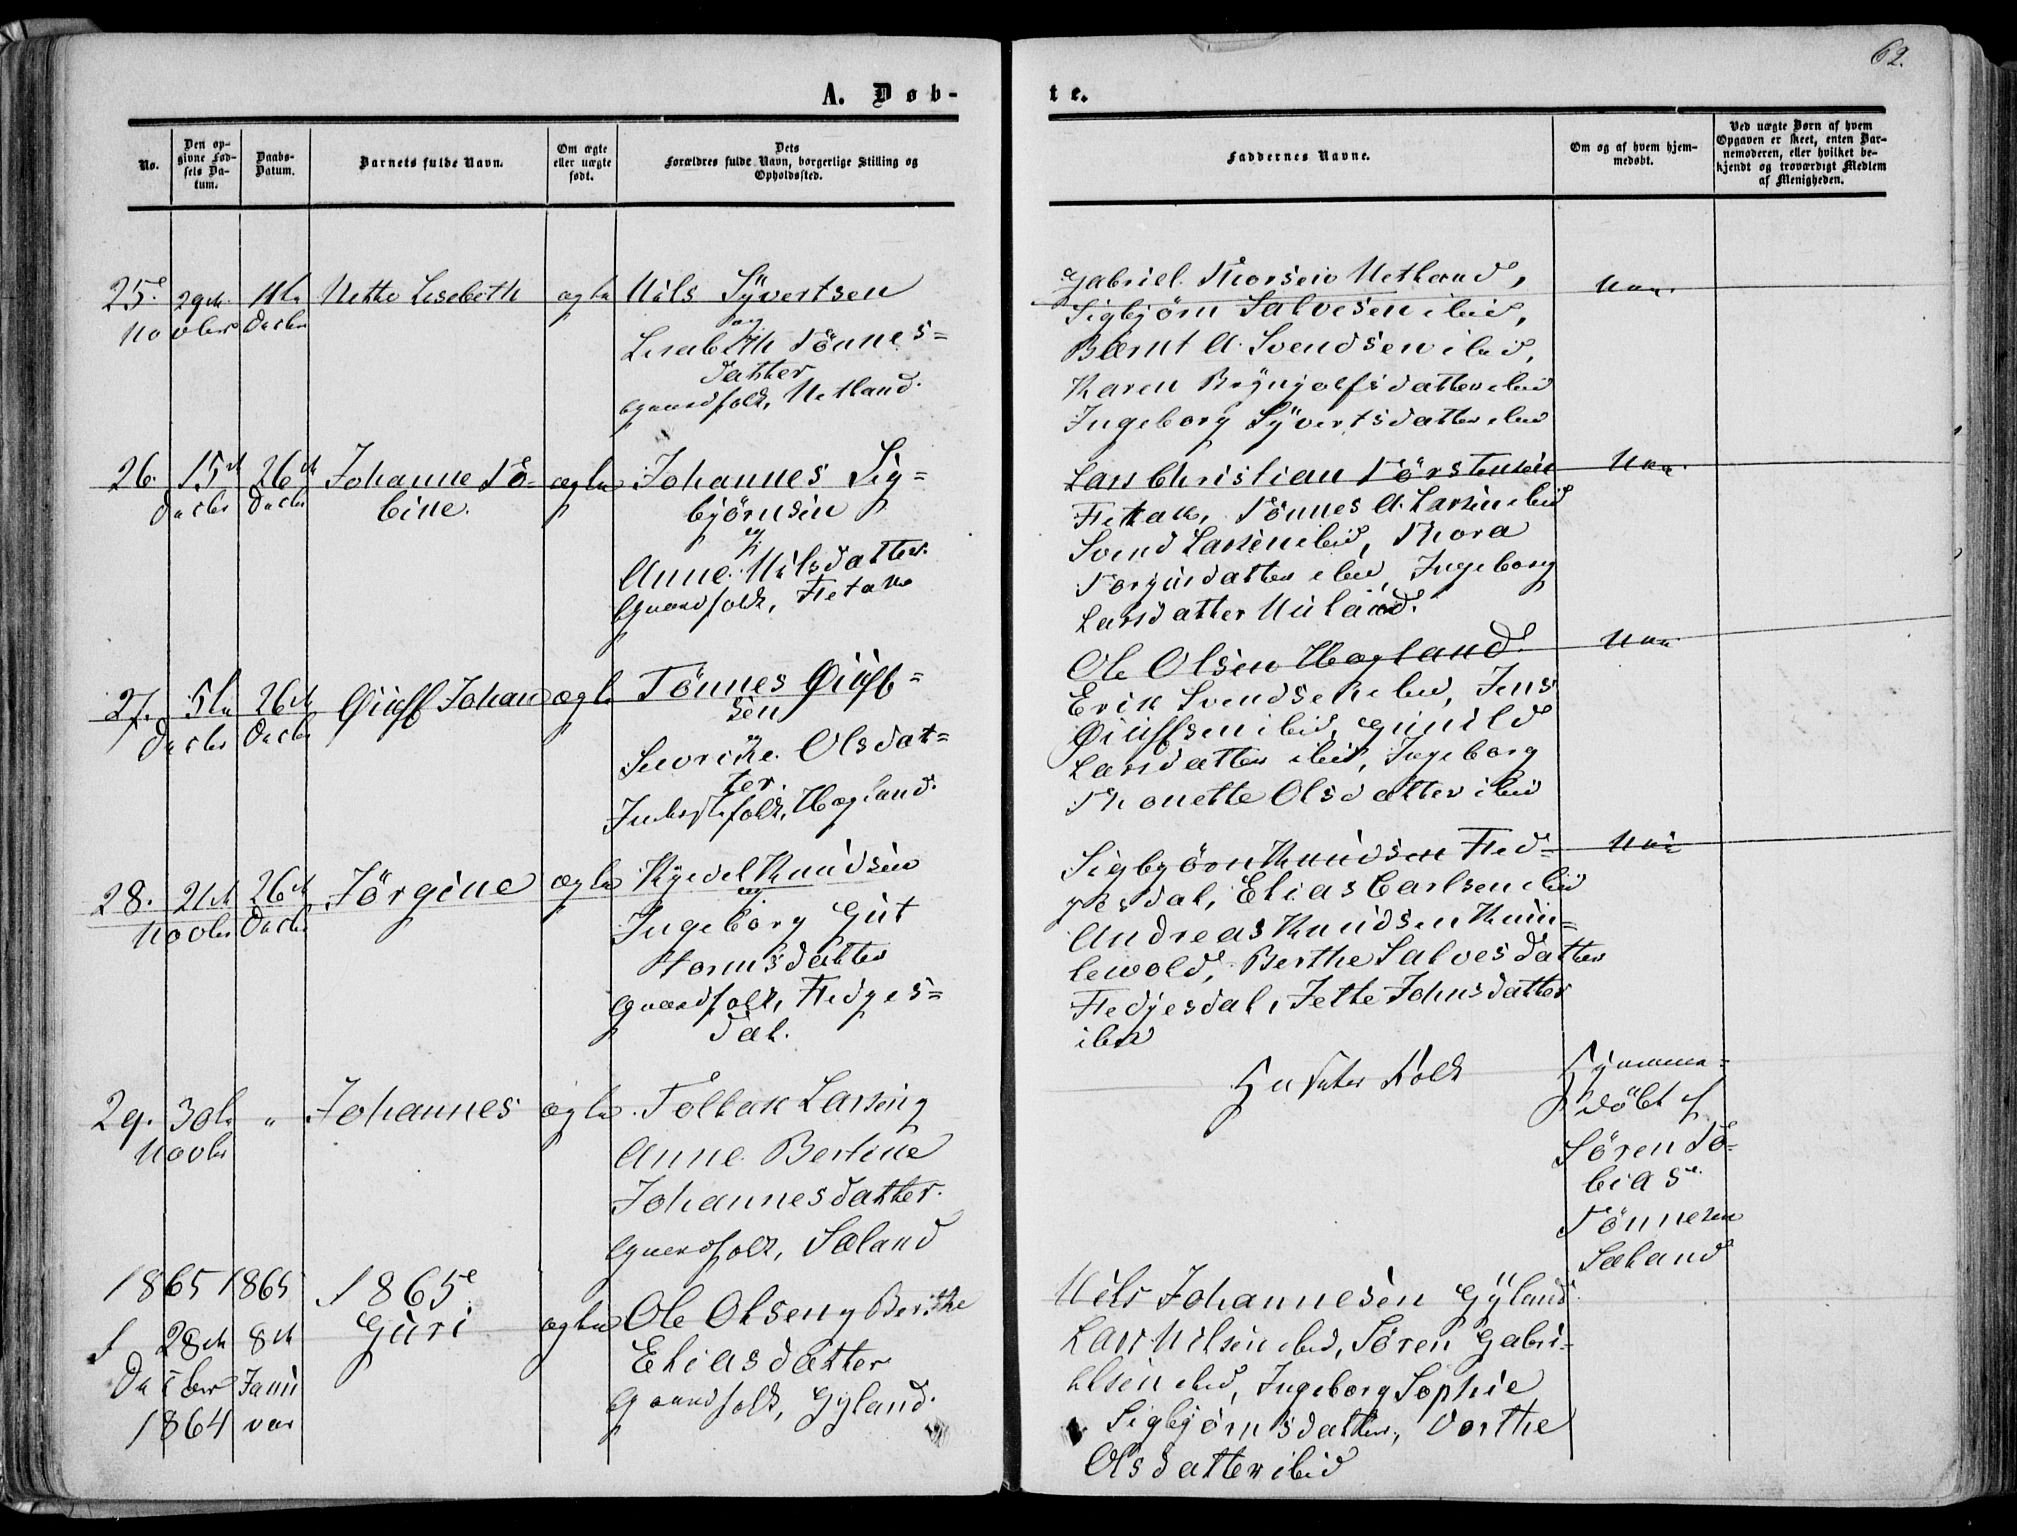 62.
A. Døb-
te.
No.
Den op-
givne Fød-
sels Da-
tum.
Daabs-
Datum.
Barnets fulde Navn.
Om ægte
eller uægte
født.
Dets
Forældres fulde Navn, borgerlige Stilling og
Opholdssted.
Faddernes Navne.
Om og af hvem hjem-
medøbt.
Ved uægte Børn af hvem
Opgaven er skeet, enten Bar-
nemoderen, eller hvilket be-
kjendt og troværdigt Medlem
af Menigheden.
25. 29de 11te Nette Lisebeth ægte Nils Syvertsen
Novbr Decbr
og
Lisabeth Tønnes=
datter
Gaardfolk, Netland.
Gabriel Thorsen Netland,
Sigbjørn Salvesen ibid,
Bernt A. Svendsen ibid,
Karen Brynjolfsdatter ibid
Ingeborg Syvertsdatter ibid
26. 15de 26de Johanne To- ægte Johannes Sig=
Decbr Decbr bine. bjørnsen
og
Anne Nilsdatter
Gaardfolk, Fletan
Lars Christian Torstensen
Tønnes A. Larsen ibid
Svend Larsen ibid, Thora
Torjusdatter ibid, Ingeborg
Larsdatter Nuland.
27. 5te 26de Johan ægte Tønnes
Decbr Decbr
sen
og
Severine Olsdat=
ter.
folk, Hogland.
Ole Olsen Hogland.
Erik Svendsen ibid, Jens
ibid, Gunild
Larsdatter ibid, Ingeborg
Thonette Olsdatter ibid
28. 21de 26de Jørgine ægte Kjedel Knudsen
Novbr Decbr
og
Ingeborg Gut
tormsdatter
Gaardfolk, Fledges=
dal.
Sigbjørn Knudsen Fled=
gesdal, Elias Carlsen ibid
Andreas Knudsen
Berthe Salvesdatter
Fledgesdal, Jette Johnsdatter
ibid
29. 30te " Johannes ægte Tollak Larsen og
Novbr
Anne Bertine
Johannesdatter.
Gaardfolk, Sæland
Hjemme=
døbt af
Søren To-
bias
Tønnesen
Sæland
1865 1865 1865
1 28de 8de Guri ægte Ole Olsen og Berthe
Decber Janu
1864 var
Eliasdatter
Gaardfolk, Gyland.
Nils Johannesen Gyland
Lars Nilsen ibid, Søren Gabri-
elsen ibid, Ingeborg Sophie
Sigbjørnsdatter, Dorthe
Olsdatter ibid